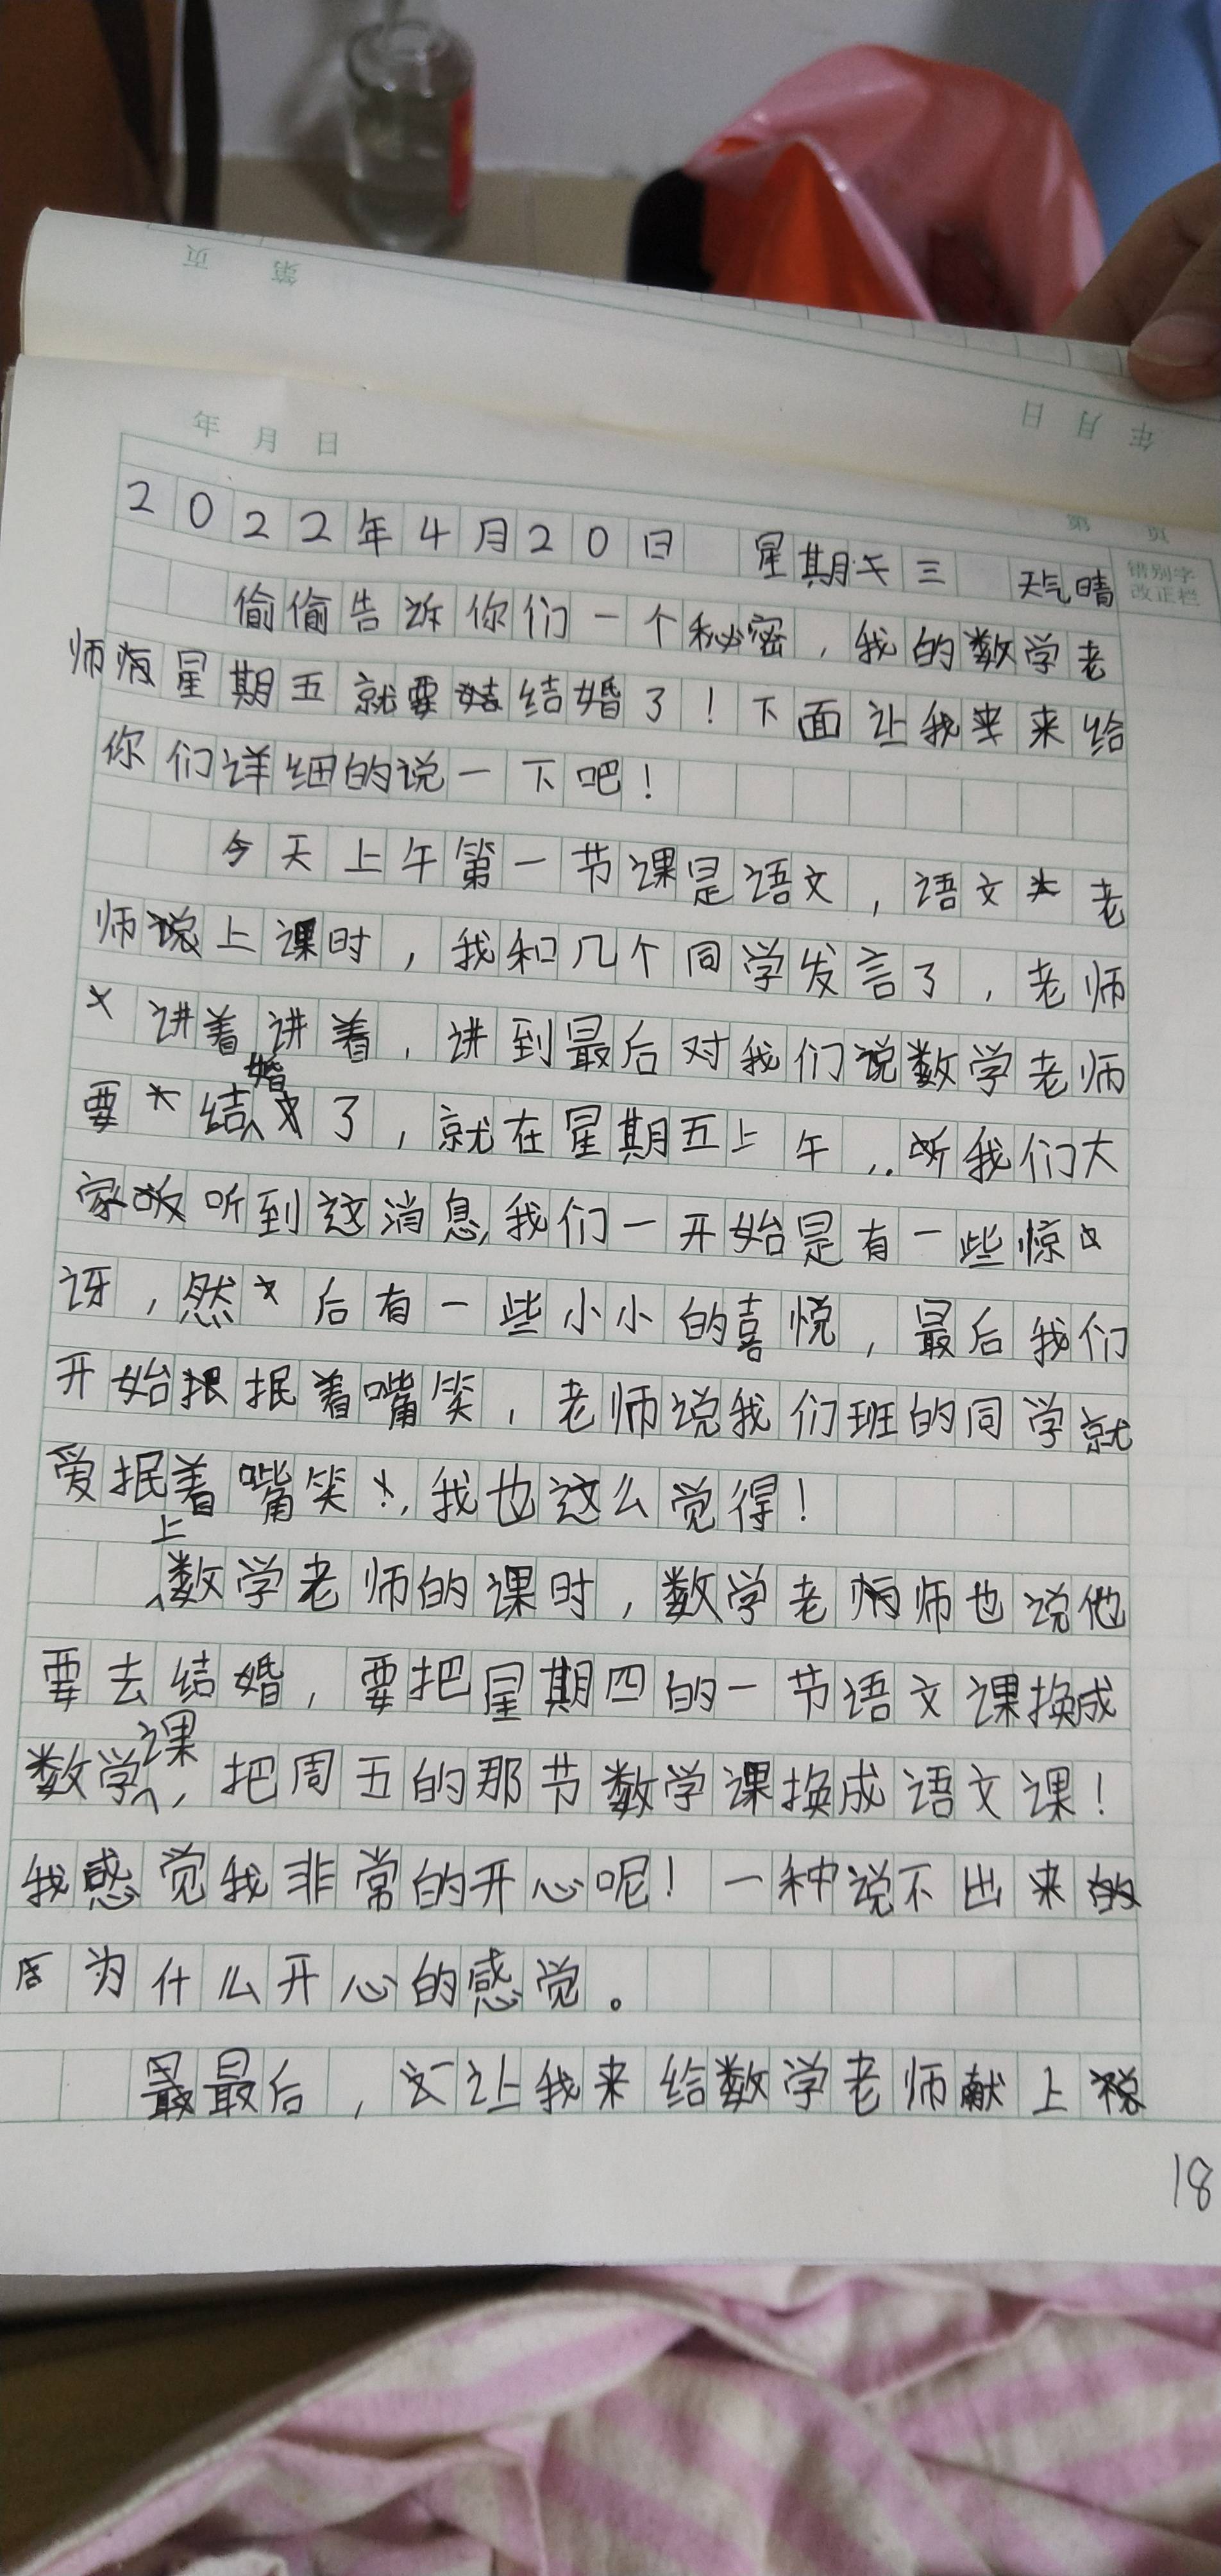 页 第
日 月 年
年 月 日
第 页
错别字
改正栏
2022年4月20日 星期三 天气晴
偷偷告诉你们一个秘密，我的数学老
师星期五就要结婚了！下面让我来给
你们详细的说一下吧！
今天上午第一节课是语文，语文老
师上课时，我和几个同学发言了，老师
讲着讲着，讲到最后对我们说数学老师
要结婚了，就在星期五上午，我们大
家听到这消息，我们一开始是有一些惊
讶，然后有一些小小的喜悦，最后我们
开始抿着嘴笑，老师说我们班的同学就
爱抿着嘴笑，我也这么觉得！
上数学老师的课时，数学老师也说他
要去结婚，要把星期四的一节语文课换成
数学课，把周五的那节数学课换成语文课！
我感觉我非常的开心呢！一种说不出来
为什么开心的感觉。
最后，让我来给数学老师献上
18